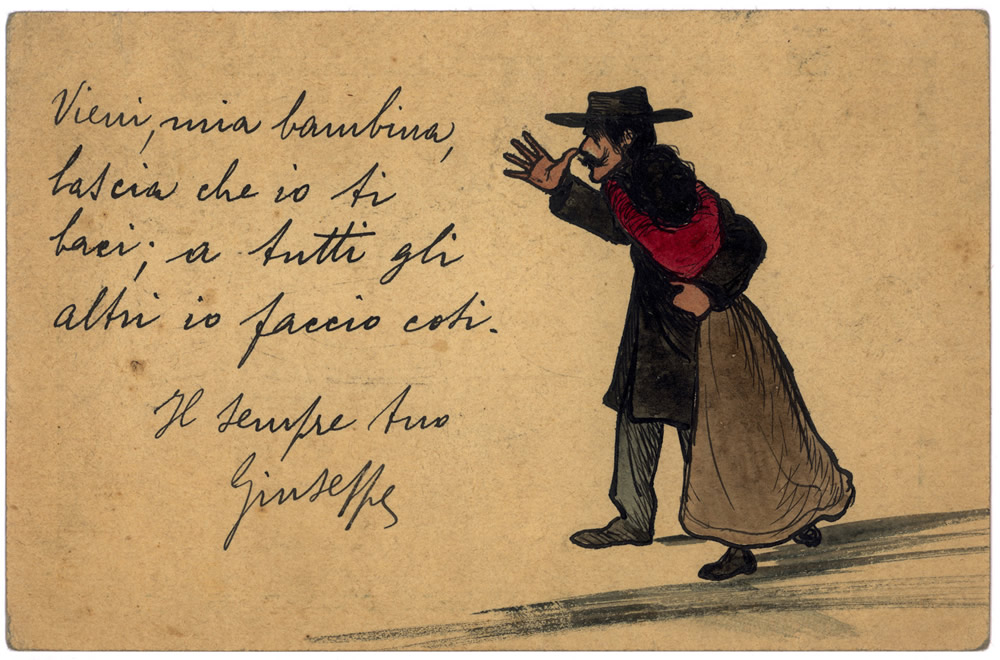 Vieni, mia bambina,
lascia che io ti
baci; a tutti gli
altri io faccio così.
Il sempre tuo
Giuseppe